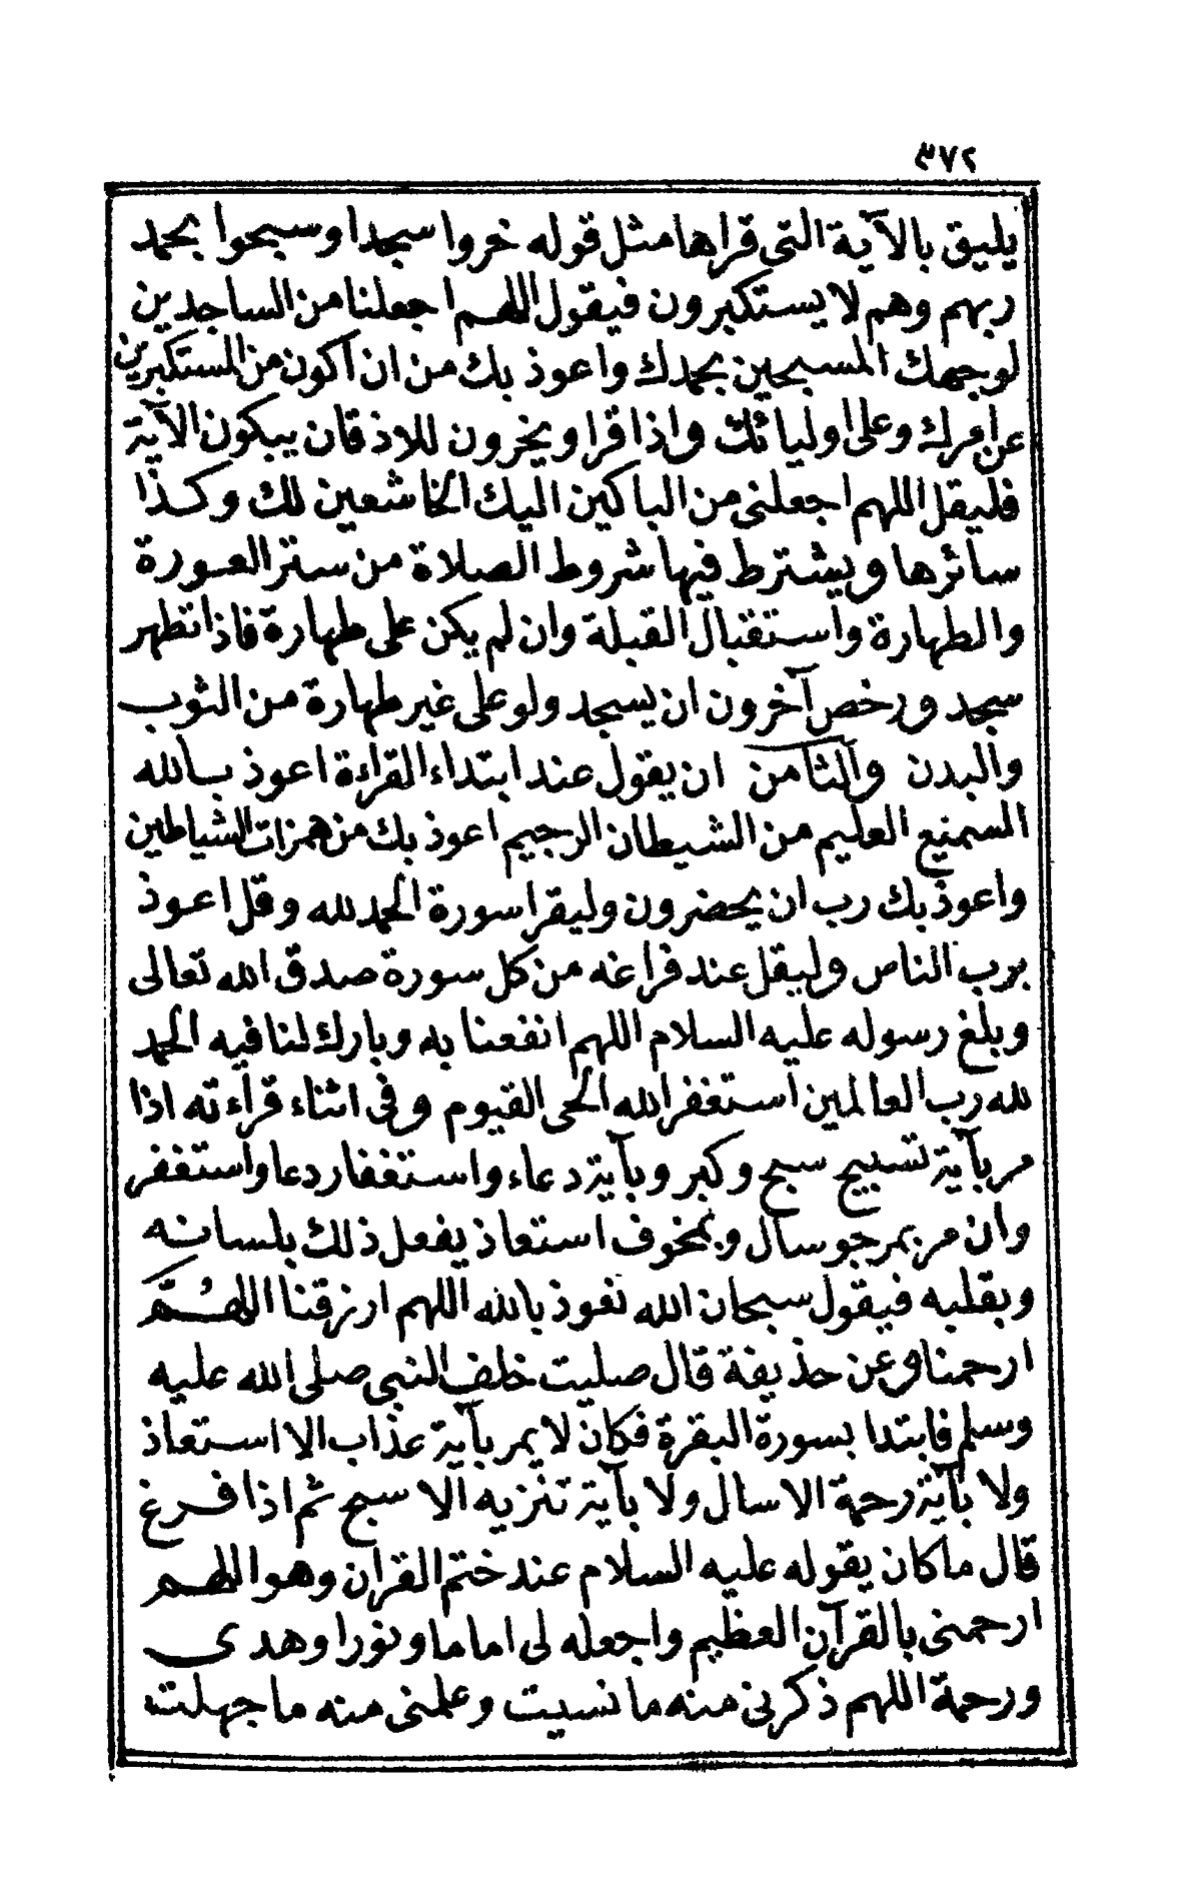 ٣٧٢
يليق بالآية التى قراها مثل قوله خروا سجدا وسبحوا بحمد
ربهم وهم لا يستكبرون فيقول اللهم اجعلنا من الساجدين
لوجهك المسبحين بحمدك واعوذ بك من ان اكون من المستكبرين
عن امرك وعلى اوليائك واذا قرا ويخرون للاذقان يبكون الآية
فليقل اللهم اجعلنى من الباكين اليك الخاشعين لك وكذا
سائرها ويشترط فيها شروط الصلاة من ستر العورة
والطهارة واستقبال القبلة وان لم يكن على طهارة فاذا تطهر
سجد ورخص آخرون ان يسجد ولو على غير طهارة من الثوب
والبدن والثامن ان يقول عند ابتداء القراءة اعوذ بالله
السميع العليم من الشيطان الرجيم اعوذ بك من همزات الشياطين
واعوذ بك رب ان يحضرون وليقرا سورة الحمد لله وقل اعوذ
برب الناس وليقل عند فراغه من كل سورة صدق الله تعالى
وبلغ رسوله عليه السلام اللهم انفعنا به وبارك لنا فيه الحمد
لله رب العالمين استغفر الله الحى القيوم وفى اثناء قراءته اذا
مر بآية تسبيح سبح وكبر وبآية دعاء واستغفار دعا واستغفر
وان مر بمرجو سال وبمخوف استعاذ يفعل ذلك بلسانه
وبقلبه فيقول سبحان الله نعوذ بالله اللهم ارزقنا اللهُمَّ
ارحمنا وعن حذيفة قال صليت خلف النبى صلى الله عليه
وسلم فابتدا بسورة البقرة فكان لا يمر بآية عذاب الا استعاذ
ولا بآية رحمة الا سال ولا بآية تنزيه الا سبح ثم اذا فرغ
قال ما كان يقوله عليه السلام عند ختم القران وهو اللهم
ارحمنى بالقرآن العظيم واجعله لى اماما ونورا وهدى
ورحمة اللهم ذكرنى منه ما نسيت وعلمنى منه ما جهلت